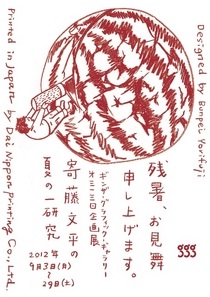 Designed by Bunpei Yorifuji
残暑、お見舞
申し上げます。
ggg
ギンザ・グラフィック・ギャラリー
第313回企画展
寄藤文平の
夏の一研究
2012年
9月3日(月)
〜29日(土)
Printed in Japan by Dai Nippon Printing Co., Ltd.